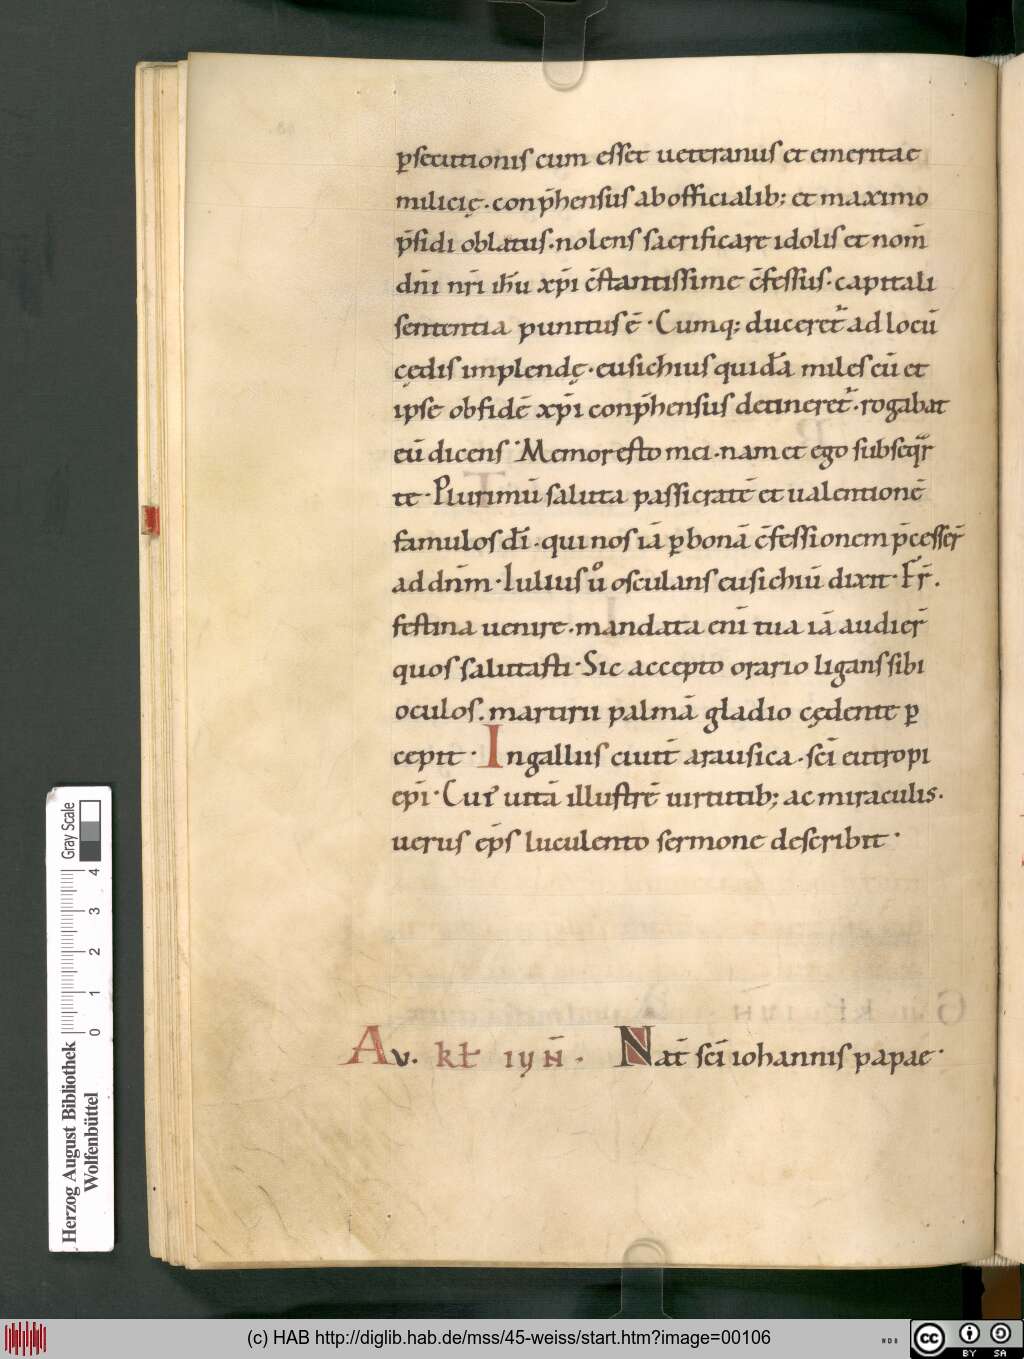 p̱secutionis cum esset ueteranus et emeritae
milicię. conp̄hensus ab officialib; et maximo
p̄sidi oblatus. nolens sacrificare idolis et nom̄
dn̄i nr̄i ih̄u xp̄i c̄stantissime c̄fessus. capitali
sententia punitus ē. Cumq; duceret̄ ad locū
cędis implendę. eusichius quidā miles cū et
ipse ob fidē xp̄i conp̄hensus detineret̄. rogabat
eū dicens. Memor esto mei. nam et ego subseq̄r
te. Plurimū saluta passicratē et ualentionē
famulos dī. qui nos iā p̱ bonā c̄fessionem p̄cesser̄
ad dn̄m. Iulius ů osculans eusichiū dixit. Fr̄.
festina uenire. mandata eni̅ tua iā audier̄
quos salutasti. Sic accepto orario ligans sibi
oculos. martirii palmā gladio cędente p̱
cepit. In galliis ciuit̄ arausica. sc̄i eutropi
ep̄i. Cuiꝰ uitā illustrē uirtutib; ac miraculis.
uerus ep̄s luculento sermone describit.
Av. kł iyn̄. Nat̄ sc̄i iohannis papae.
Herzog August Bibliothek
Wolfenbüttel
0 1 2 3 4
Gray Scale
(c) HAB http://diglib.hab.de/mss/45-weiss/start.htm?image=00106
cc BY SA